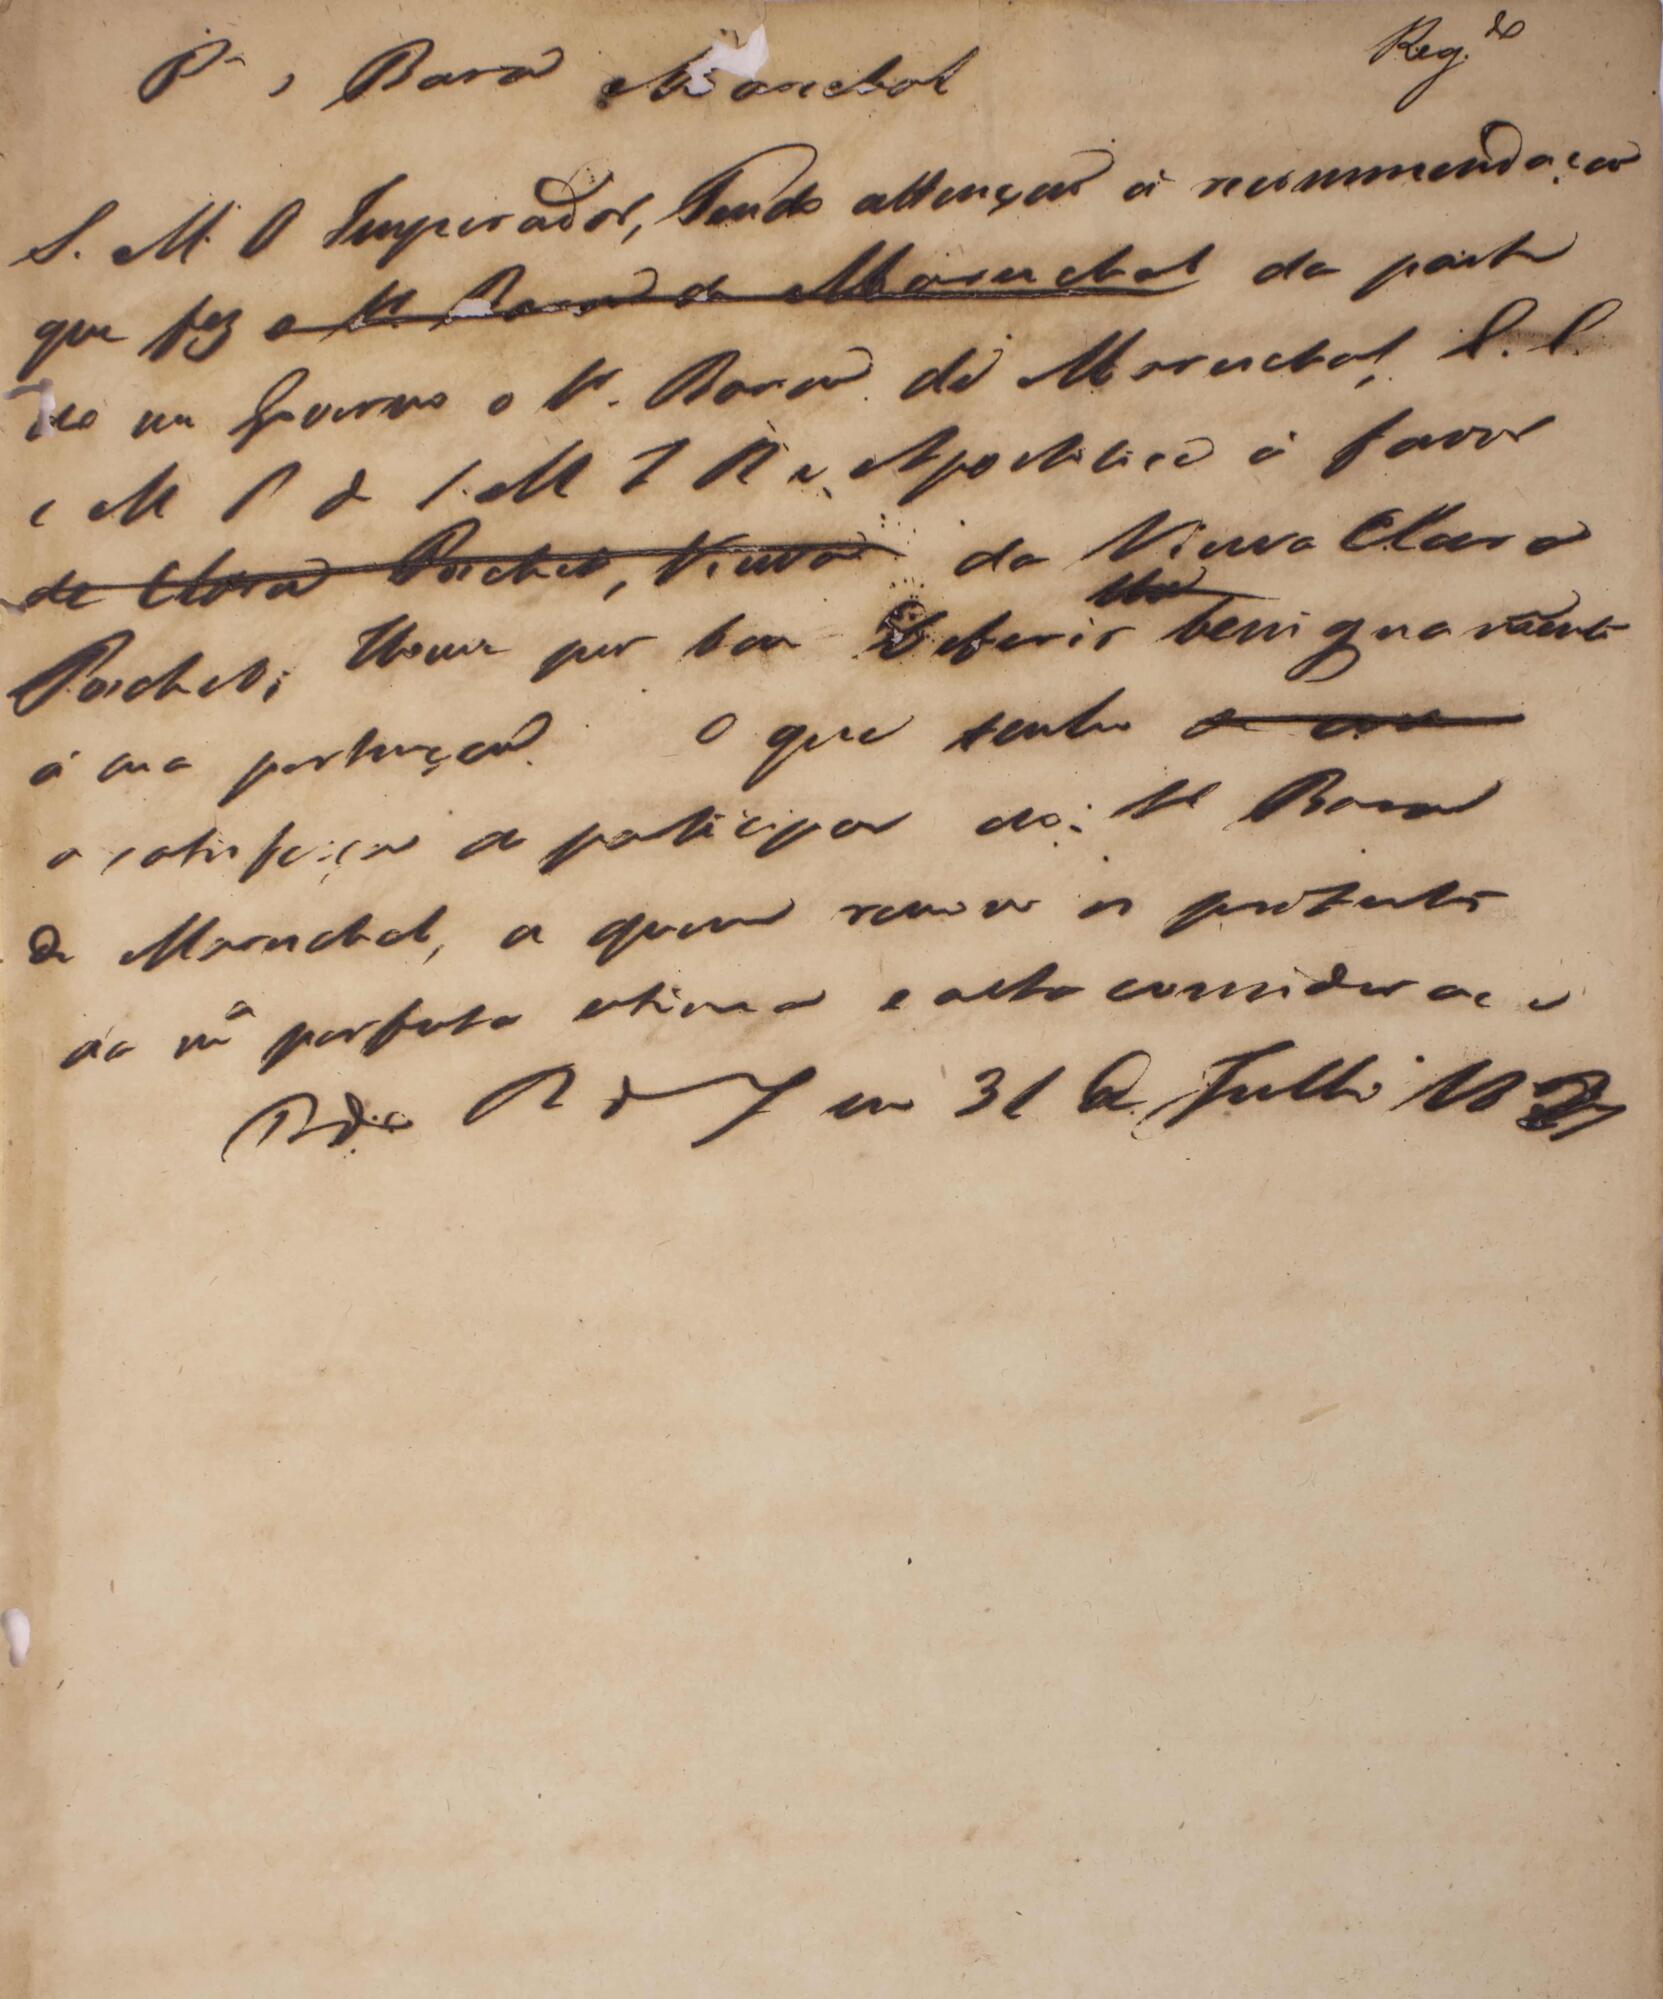 Reg.do
Pa o Barão Mareschal
S. M. O Imperador, Tendo attenção á recommendação
que fez o Sr. Barão de Mareschal da parte
do seu Governo o Sr. Barão de Mareschal,
e M P de S. M I R e Apostolica á favor
de Clara Porchat, Viuva da Viuva Clara
Porchat; Houve por bem Deferir benignamente
á sua pertenção. O que tenho
a satisfação de participar ao Sr Barão
de Mareschal, a quem renovo os protestos
da ma perfeita estima e alta consideração
R de J em 31 de Julho 182